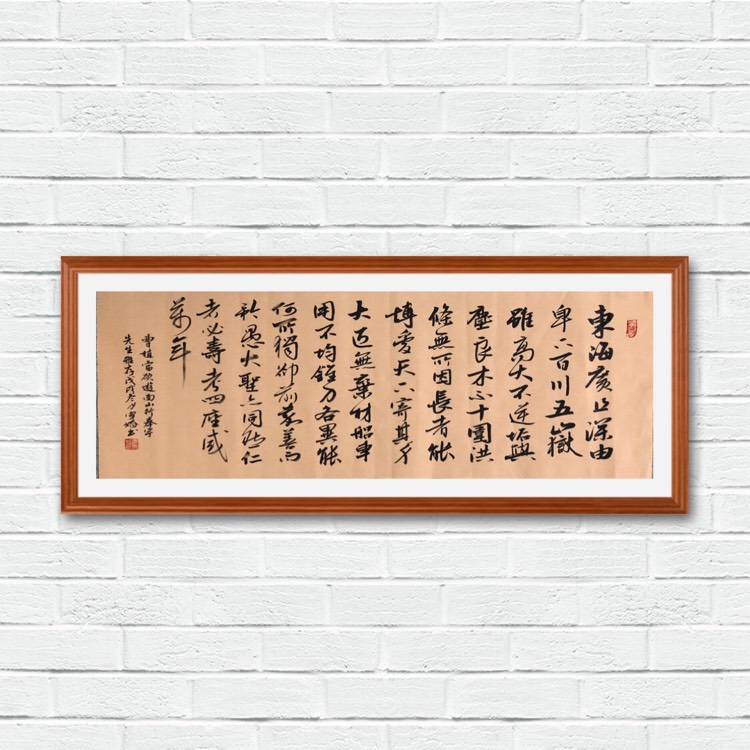 東海廣且深由
卑下百川五嶽
雖高大不逆垢與
塵良木不十圍洪
條無所因長者能
博愛天下寄其身
大匠無棄材船車
用不均錐刀各異能
何所獨卻前嘉善而
矜愚大聖亦同然仁
者必壽考四座咸
萬年
曹植當欲遊南山行奉
先生雅存戊戌冬月書